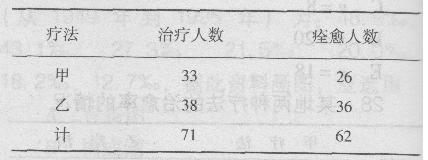 疗法 治疗人数 痊愈人数
甲 33 26
乙 38 36
计 71 62